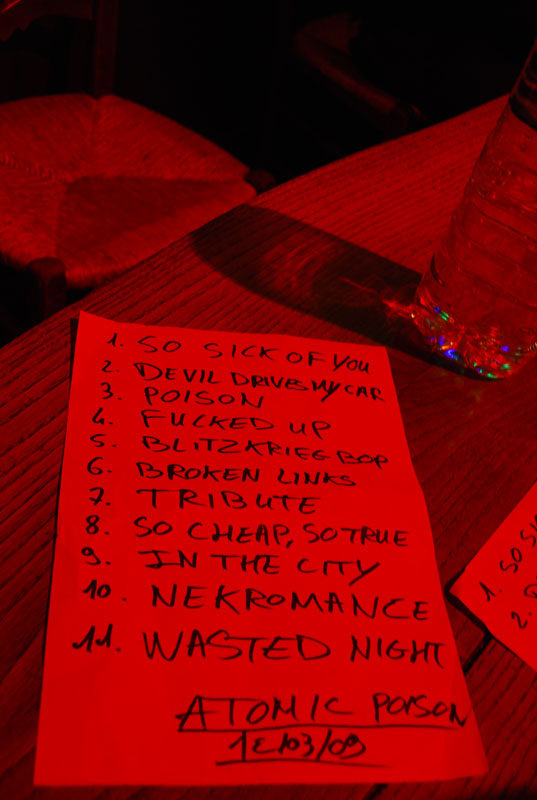 1. SO SICK OF YOU
2. DEVIL DRIVES MY CAR
3. POISON
4. FUCKED UP
5. BLITZKRIEG BOP
6. BROKEN LINKS
7. TRIBUTE
8. SO CHEAP, SO TRUE
9. IN THE CITY
10. NEKROMANCE
11. WASTED NIGHT
ATOMIC POISON
1. SO
2.